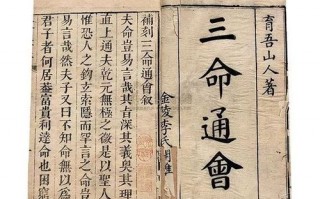 育吾山人著
三命通會
金陵李氏
補刻三命通會敘
夫命豈易言哉其旨深其義奧其理
直上通夫乾元無極之微是以聖人
惟恐人之鉤玄索隱而罕言之命豈
易言哉然夫子又曰不知命無以為
君子者何居葢富貴利達命也因窮